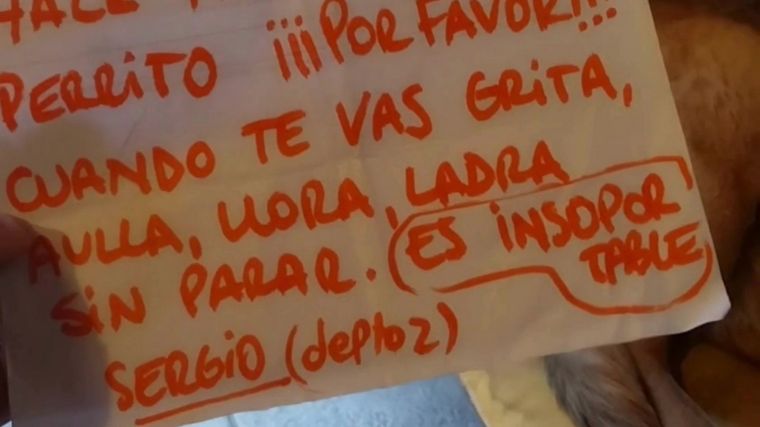 PERRITO ¡¡¡POR FAVOR!!!
CUANDO TE VAS GRITA,
AULLA, LLORA, LADRA
SIN PARAR. ES INSOPOR
TABLE
SERGIO (depto 2)